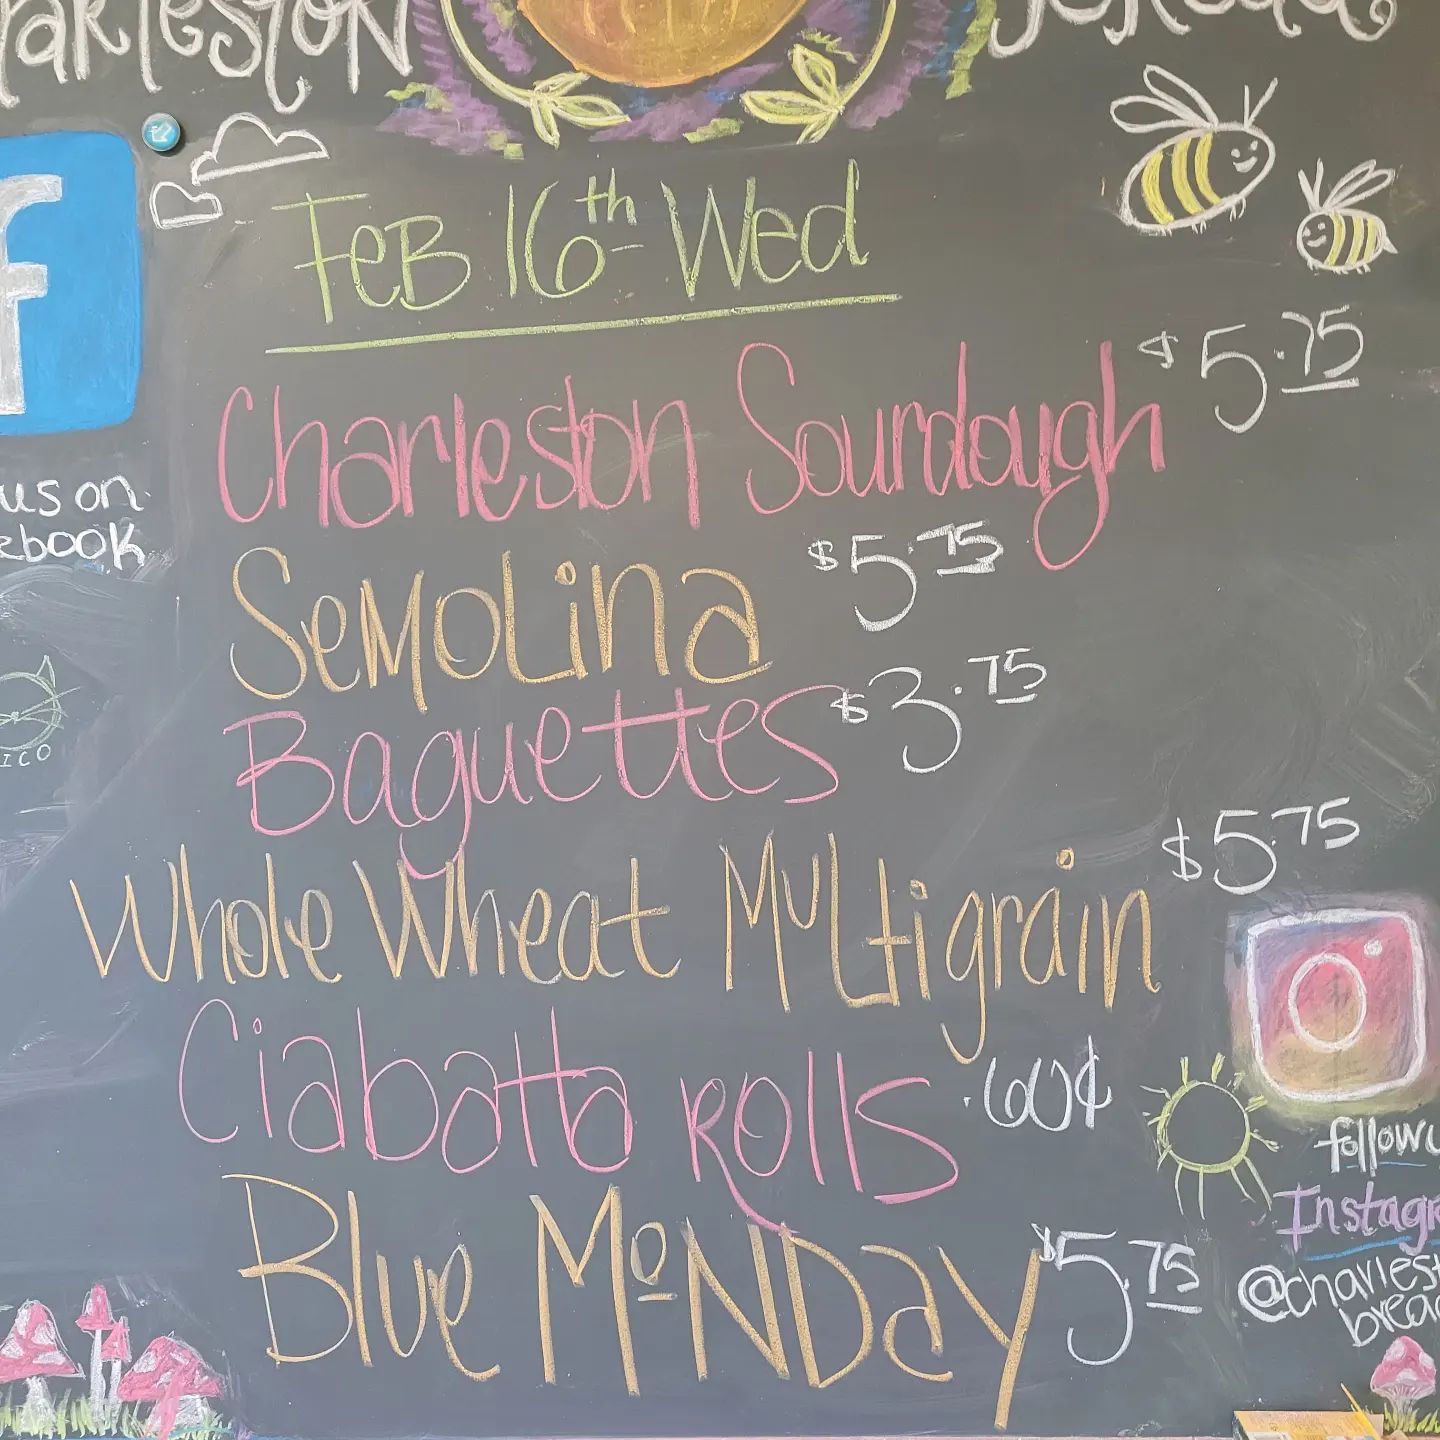 Feb 16th Wed
Charleston Sourdough $5.75
Semolina $5.75
Baguettes $3.75
Whole Wheat Multigrain $5.75
Ciabatta Rolls .60¢
Blue Monday $5.75
us on
ebook
ICO
follow u
Instagr
@charlest
brea